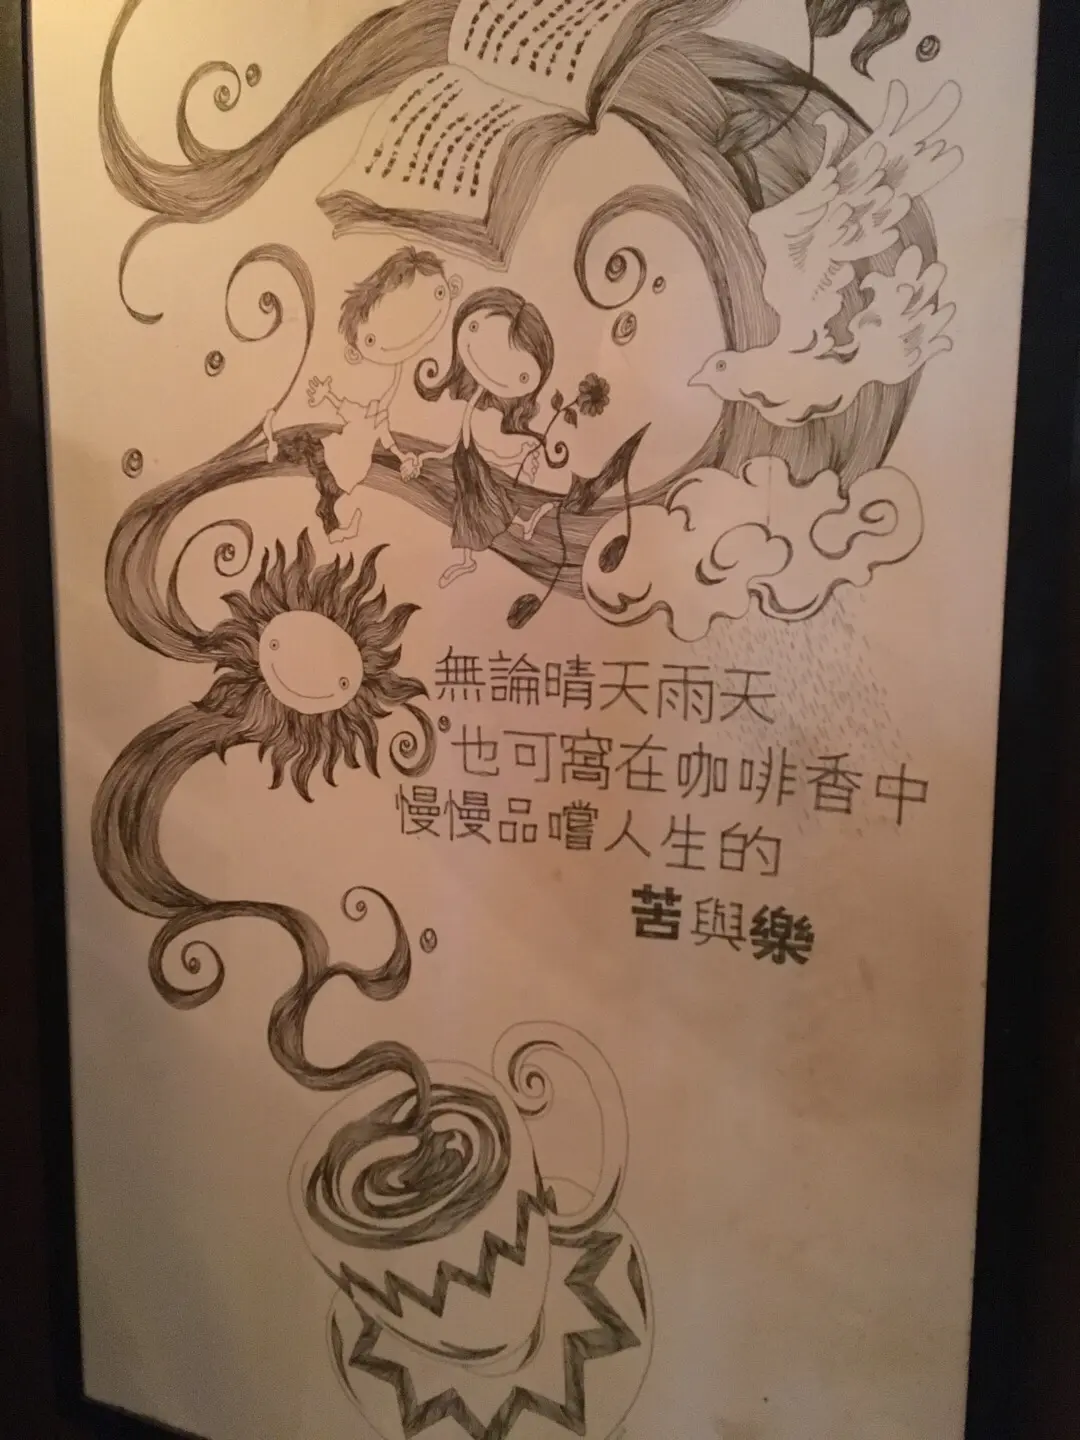 無論晴天雨天
也可窩在咖啡香中
慢慢品嚐人生的
苦與樂